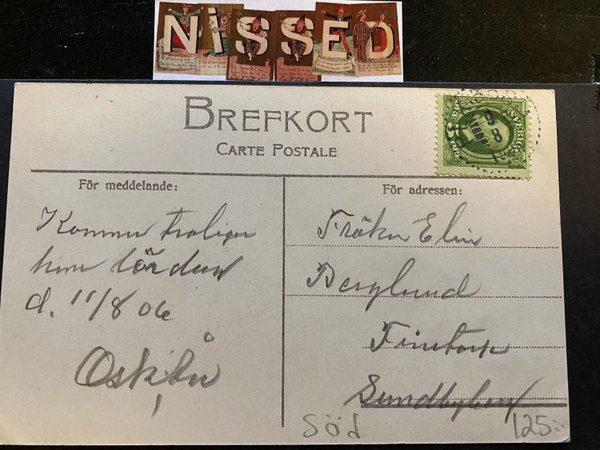 NISSED
BREFKORT
CARTE POSTALE
För meddelande:
Kommer troligen
hem lördag
d. 11/8 06
För adressen:
Fröken Elin
Berglund
Finntorp
Sundbyberg
SVERIGE
9 8
Söd
125:-